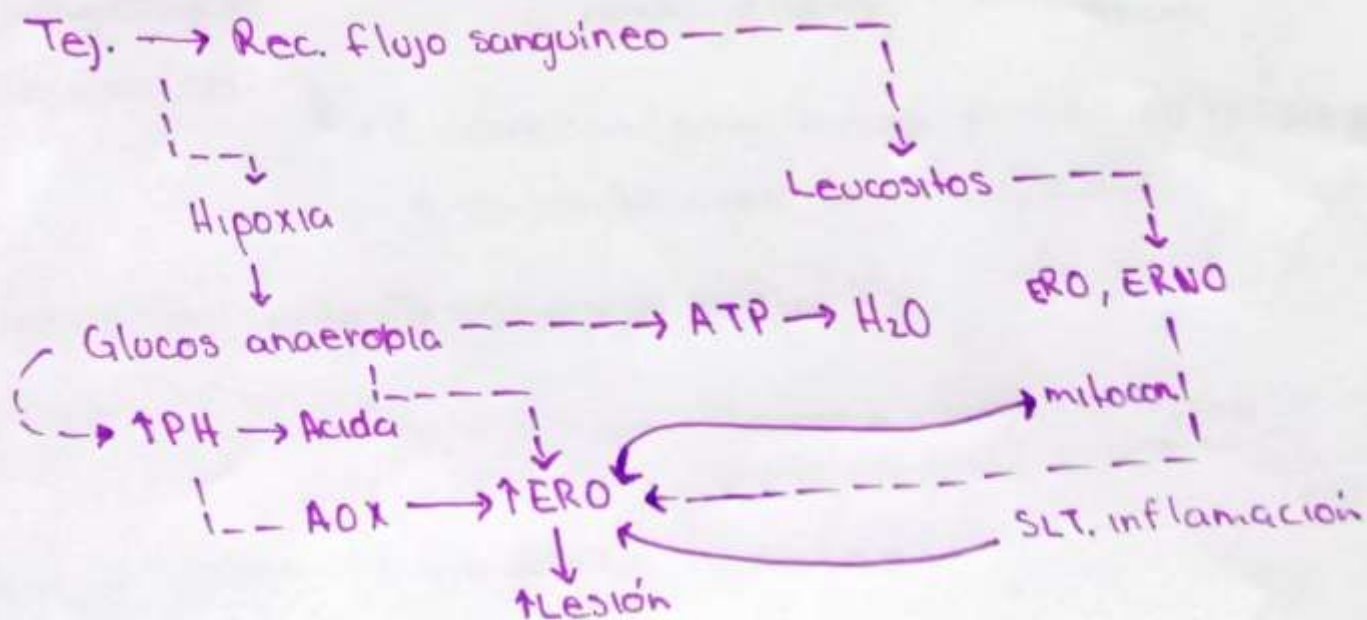 Tej. → Rec. flujo sanguineo
Leucositos
Hipoxia
ERO, ERNO
Glucos anaerobia → ATP → H₂O
↑PH → Acida
mitocon
AOX → ↑ERO
SLT. inflamación
↑Lesión